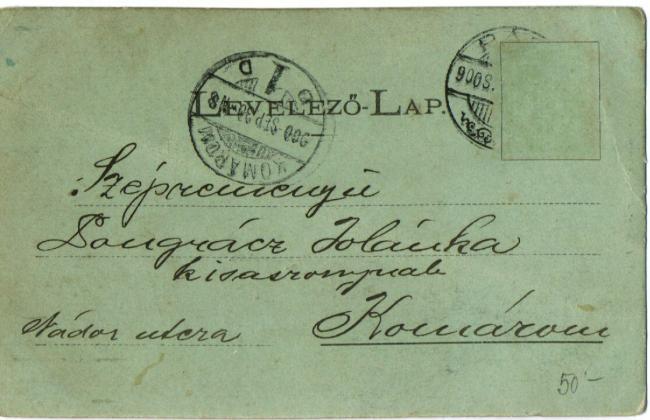 LEVELEZŐ-LAP.
KOMÁROM
900 SEP
D 1
900 S
Szépreményü
Pongrácz Jolánka
kisasszonynak
Nádor utcza
Komárom
50'-